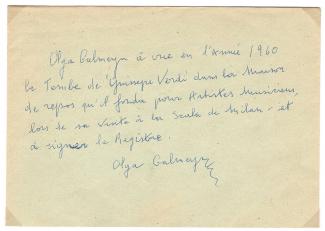 Olga Galmeyn à vue en l'Année 1960
la Tombe de Guiseppe Verdi dans la Maison
de repos qu'il fonda pour Artistes Musiciens,
lors de sa visite à la Scala de Milan - et
à signer le Registre.
Olga Galmeyn